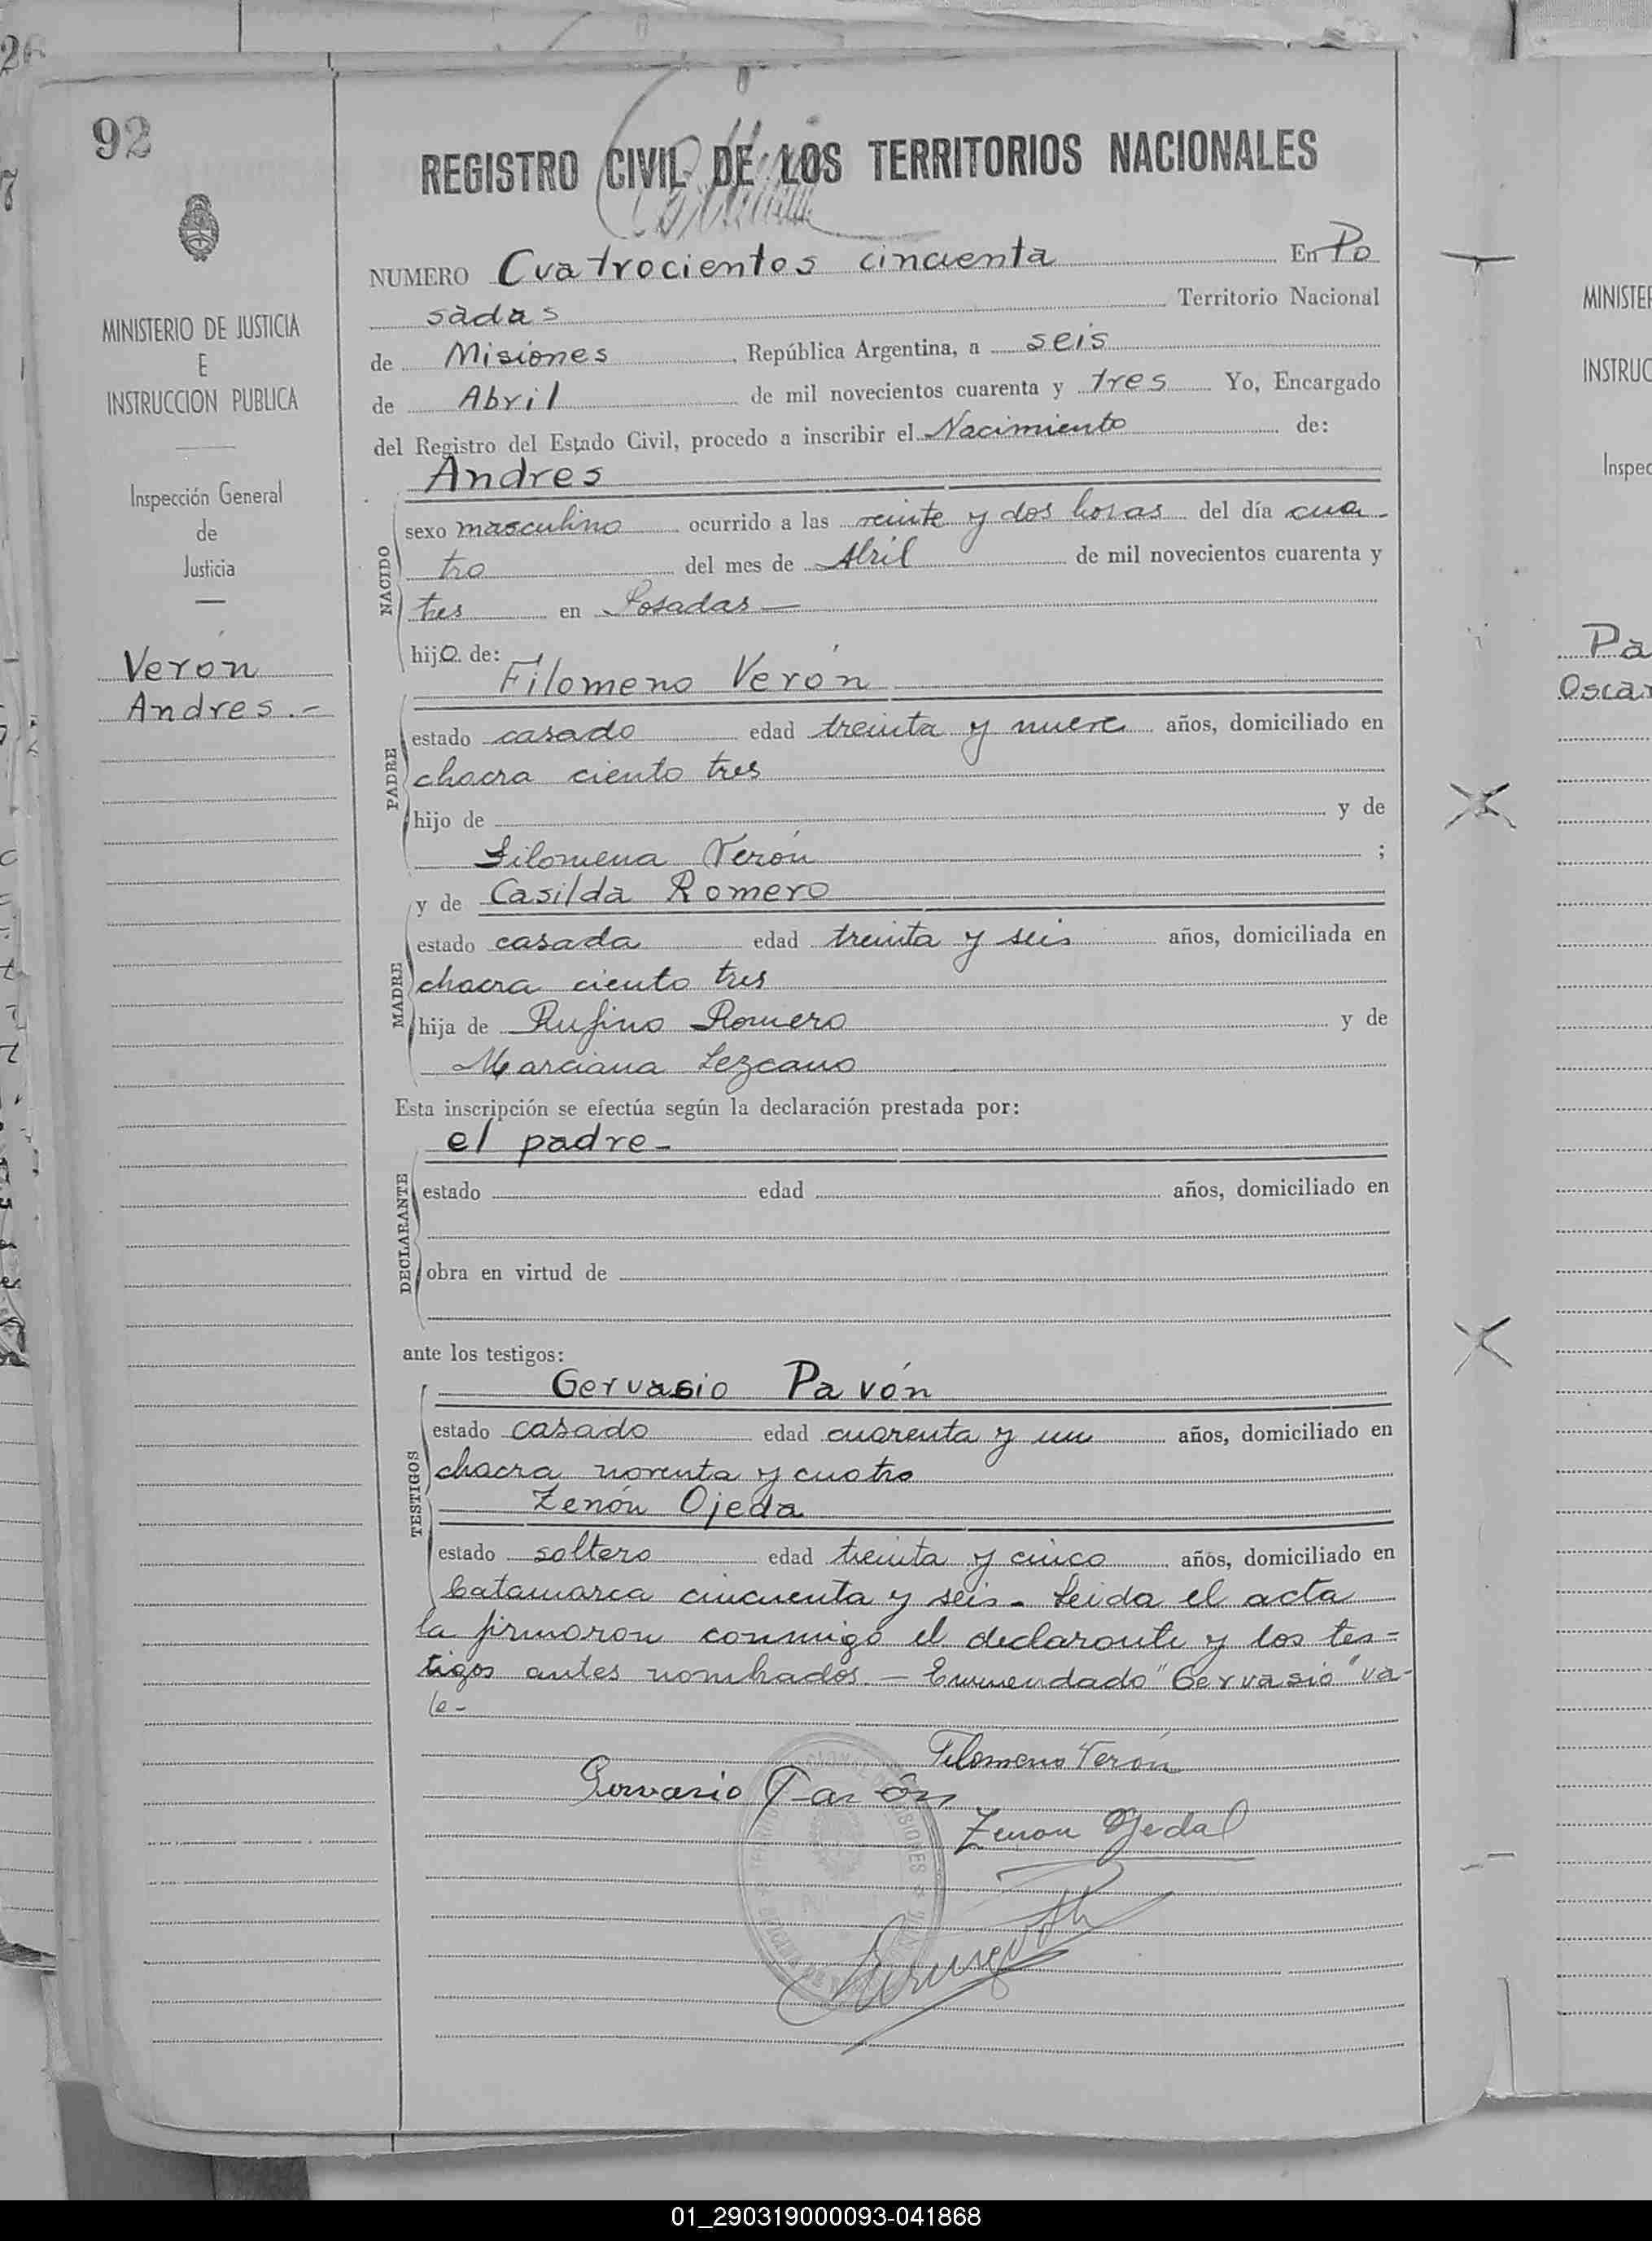 92
REGISTRO CIVIL DE LOS TERRITORIOS NACIONALES
MINISTERIO DE JUSTICIA
E
INSTRUCCION PUBLICA
Inspección General
de
Justicia
Verón
Andres.-
NUMERO Cuatrocientos cincuenta En Po
sadas Territorio Nacional
de Misiones, República Argentina, a seis
de Abril de mil novecientos cuarenta y tres Yo, Encargado
del Registro del Estado Civil, procedo a inscribir el Nacimiento de:
Andres
NACIDO
sexo masculino ocurrido a las veinte y dos horas del día cua-
tro del mes de Abril de mil novecientos cuarenta y
tres en Posadas—
hijo de:
Filomeno Verón
PADRE
estado casado edad treinta y nueve años, domiciliado en
chacra ciento tres
hijo de y de
Filomena Verón ;
y de Casilda Romero
MADRE
estado casada edad treinta y seis años, domiciliada en
chacra ciento tres
hija de Rufino Romero y de
Marciana Lezcano
Esta inscripción se efectúa según la declaración prestada por:
el padre-
DECLARANTE
estado edad años, domiciliado en
obra en virtud de
ante los testigos:
Gervasio Pavón
TESTIGOS
estado casado edad cuarenta y un años, domiciliado en
chacra noventa y cuatro
Zenón Ojeda
estado soltero edad treinta y cinco años, domiciliado en
Catamarca cincuenta y seis- Leida el acta
la firmaron conmigo el declarante y los tes=
tigos antes nombrados.- Enmendado "Gervasio" va-
le-
Filomeno Verón
Gervasio Pavón
Zenon Ojeda
MINISTER
INSTRUC
Inspec
Pa
Oscar
01_290319000093-041868